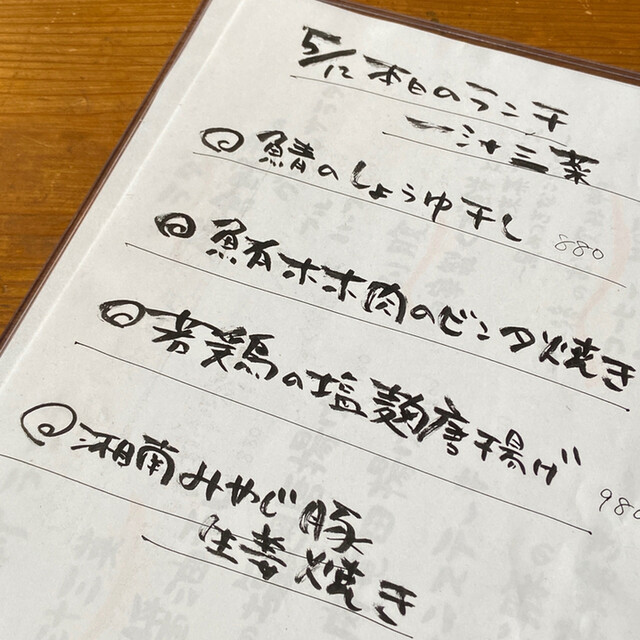 5/12 本日のランチ
一汁三菜
鯖のしょうゆ干し 880
鮪ホホ肉のビンタ焼き
若鶏の塩麹唐揚げ 980
湘南みやじ豚
生姜焼き